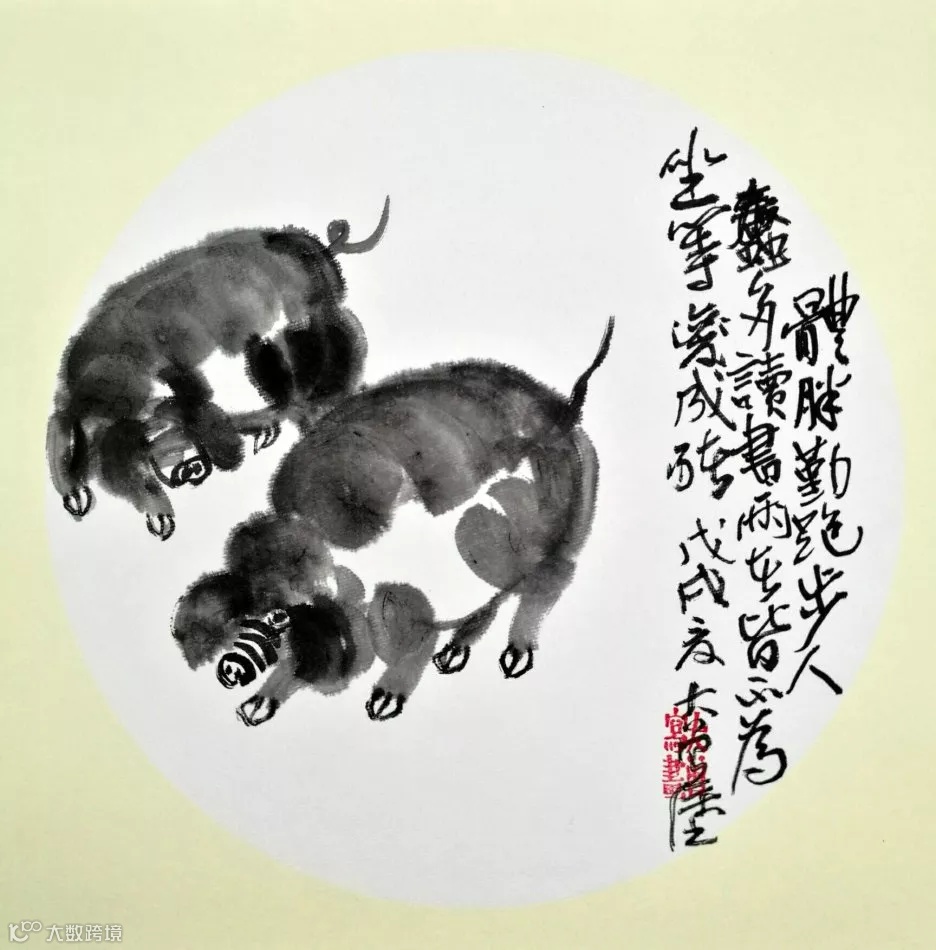 體胖勤跑步人
蠢多讀書兩者皆不為
坐等成豬 戊戌夏
大数跨境